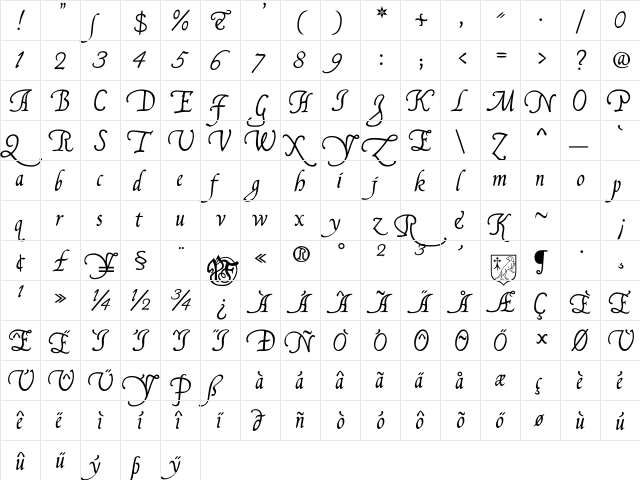 ! " ſ $ % ' ( ) * + , - . / 0
1 2 3 4 5 6 7 8 9 : ; < = > ? @
A B C D E F G H I J K L M N O P
Q R S T U V W X Y Z E \ Z ^ _ `
a b c d e f g h i j k l m n o p
q r s t u v w x y z R ¿ K ~ ¡
¢ £ ¥ § ¨ « ® ° 2 3 ' ¶ · ¸
1 » ¼ ½ ¾ ¿ À Á Â Ã Ä Å Æ Ç È É
Ê Ë Ì Í Î Ï Ð Ñ Ò Ó Ô Õ Ö × Ø Ù
Ú Û Ü Ý Þ ß à á â ã ä å æ ç è é
ê ë ì í î ï ð ñ ò ó ô õ ö ø ù ú
û ü ý þ ÿ